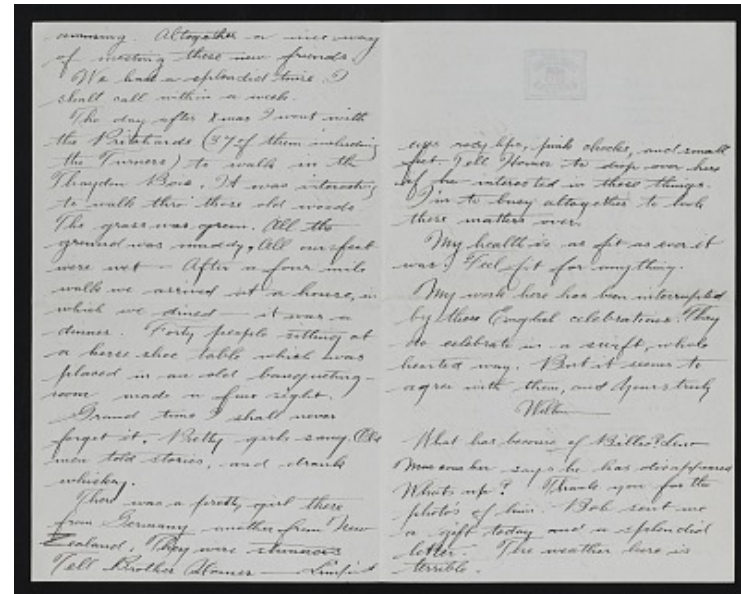 amusing. Altogether a nice way
of meeting these new friends.
We had a splendid time. I
shall call within a week.
The day after Xmas I went with
the Pritchards (37 of them including
the Turners) to walk in the
Thaydon Bois. It was interesting
to walk thro' these old woods
The grass was green. All the
ground was muddy, All our feet
were wet – After a four mile
walk we arrived at a house, in
which we dined – it was a
dinner. Forty people sitting at
a horse shoe table which was
placed in an old banqueting-
room made a fine sight.
Grand time I shall never
forget it. Pretty girls sang. Old
men told stories, and drank
whiskey.
There was a pretty girl there
from Germany another from New
Zealand. They were
Tell Brother Homer — Limpid
eyes rosy lips, pink cheeks, and small
feet. Tell Homer to drop over here
if he interested in those things.
I'm to busy altogether to look
these matters over.
My health is as fit as ever it
was. I Feel fit for anything.
My work here has been interrupted
by these English celebrations. They
do celebrate in a swift, whole
hearted way. But it seems to
agree with them, and Yours truly
What has become of
says he has disappeared
Whats up? Thank you for the
photos of him. Bob sent me
a gift today and a splendid
letter. The weather here is
terrible.